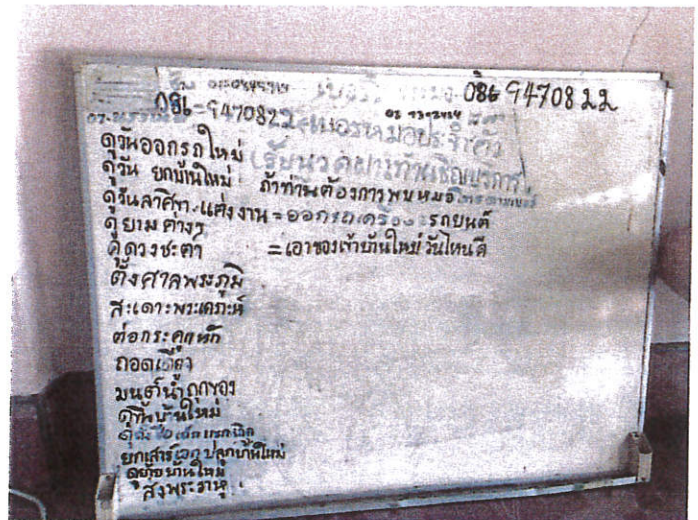 086 9470822
086-9470822 เบอร์หมอประจำตัว
ดูวันออกรถใหม่ รับนวดฝ่าเท้าเชิญบริการ
ดูวัน ยกบ้านใหม่ ถ้าท่านต้องการพบหมอ
ดูวันลาสิขา.แต่งงาน = ออกรถเครื่อง รถยนต์
ดูยามต่างๆ
ดูดวงชะตา = เอาของเข้าบ้านใหม่ วันไหนดี
ตั้งศาลพระภูมิ
สะเดาะพระเคราะห์
ต่อกระดูกหัก
ถอด
มนต์น้ำถูกของ
ดูที่บ้านใหม่
ดูตั้งชื่อเด็กแรกเกิด
ยกเสาร์เอก ปลูกบ้านใหม่
ดูย้ายบ้านใหม่
ส่งพระราหู